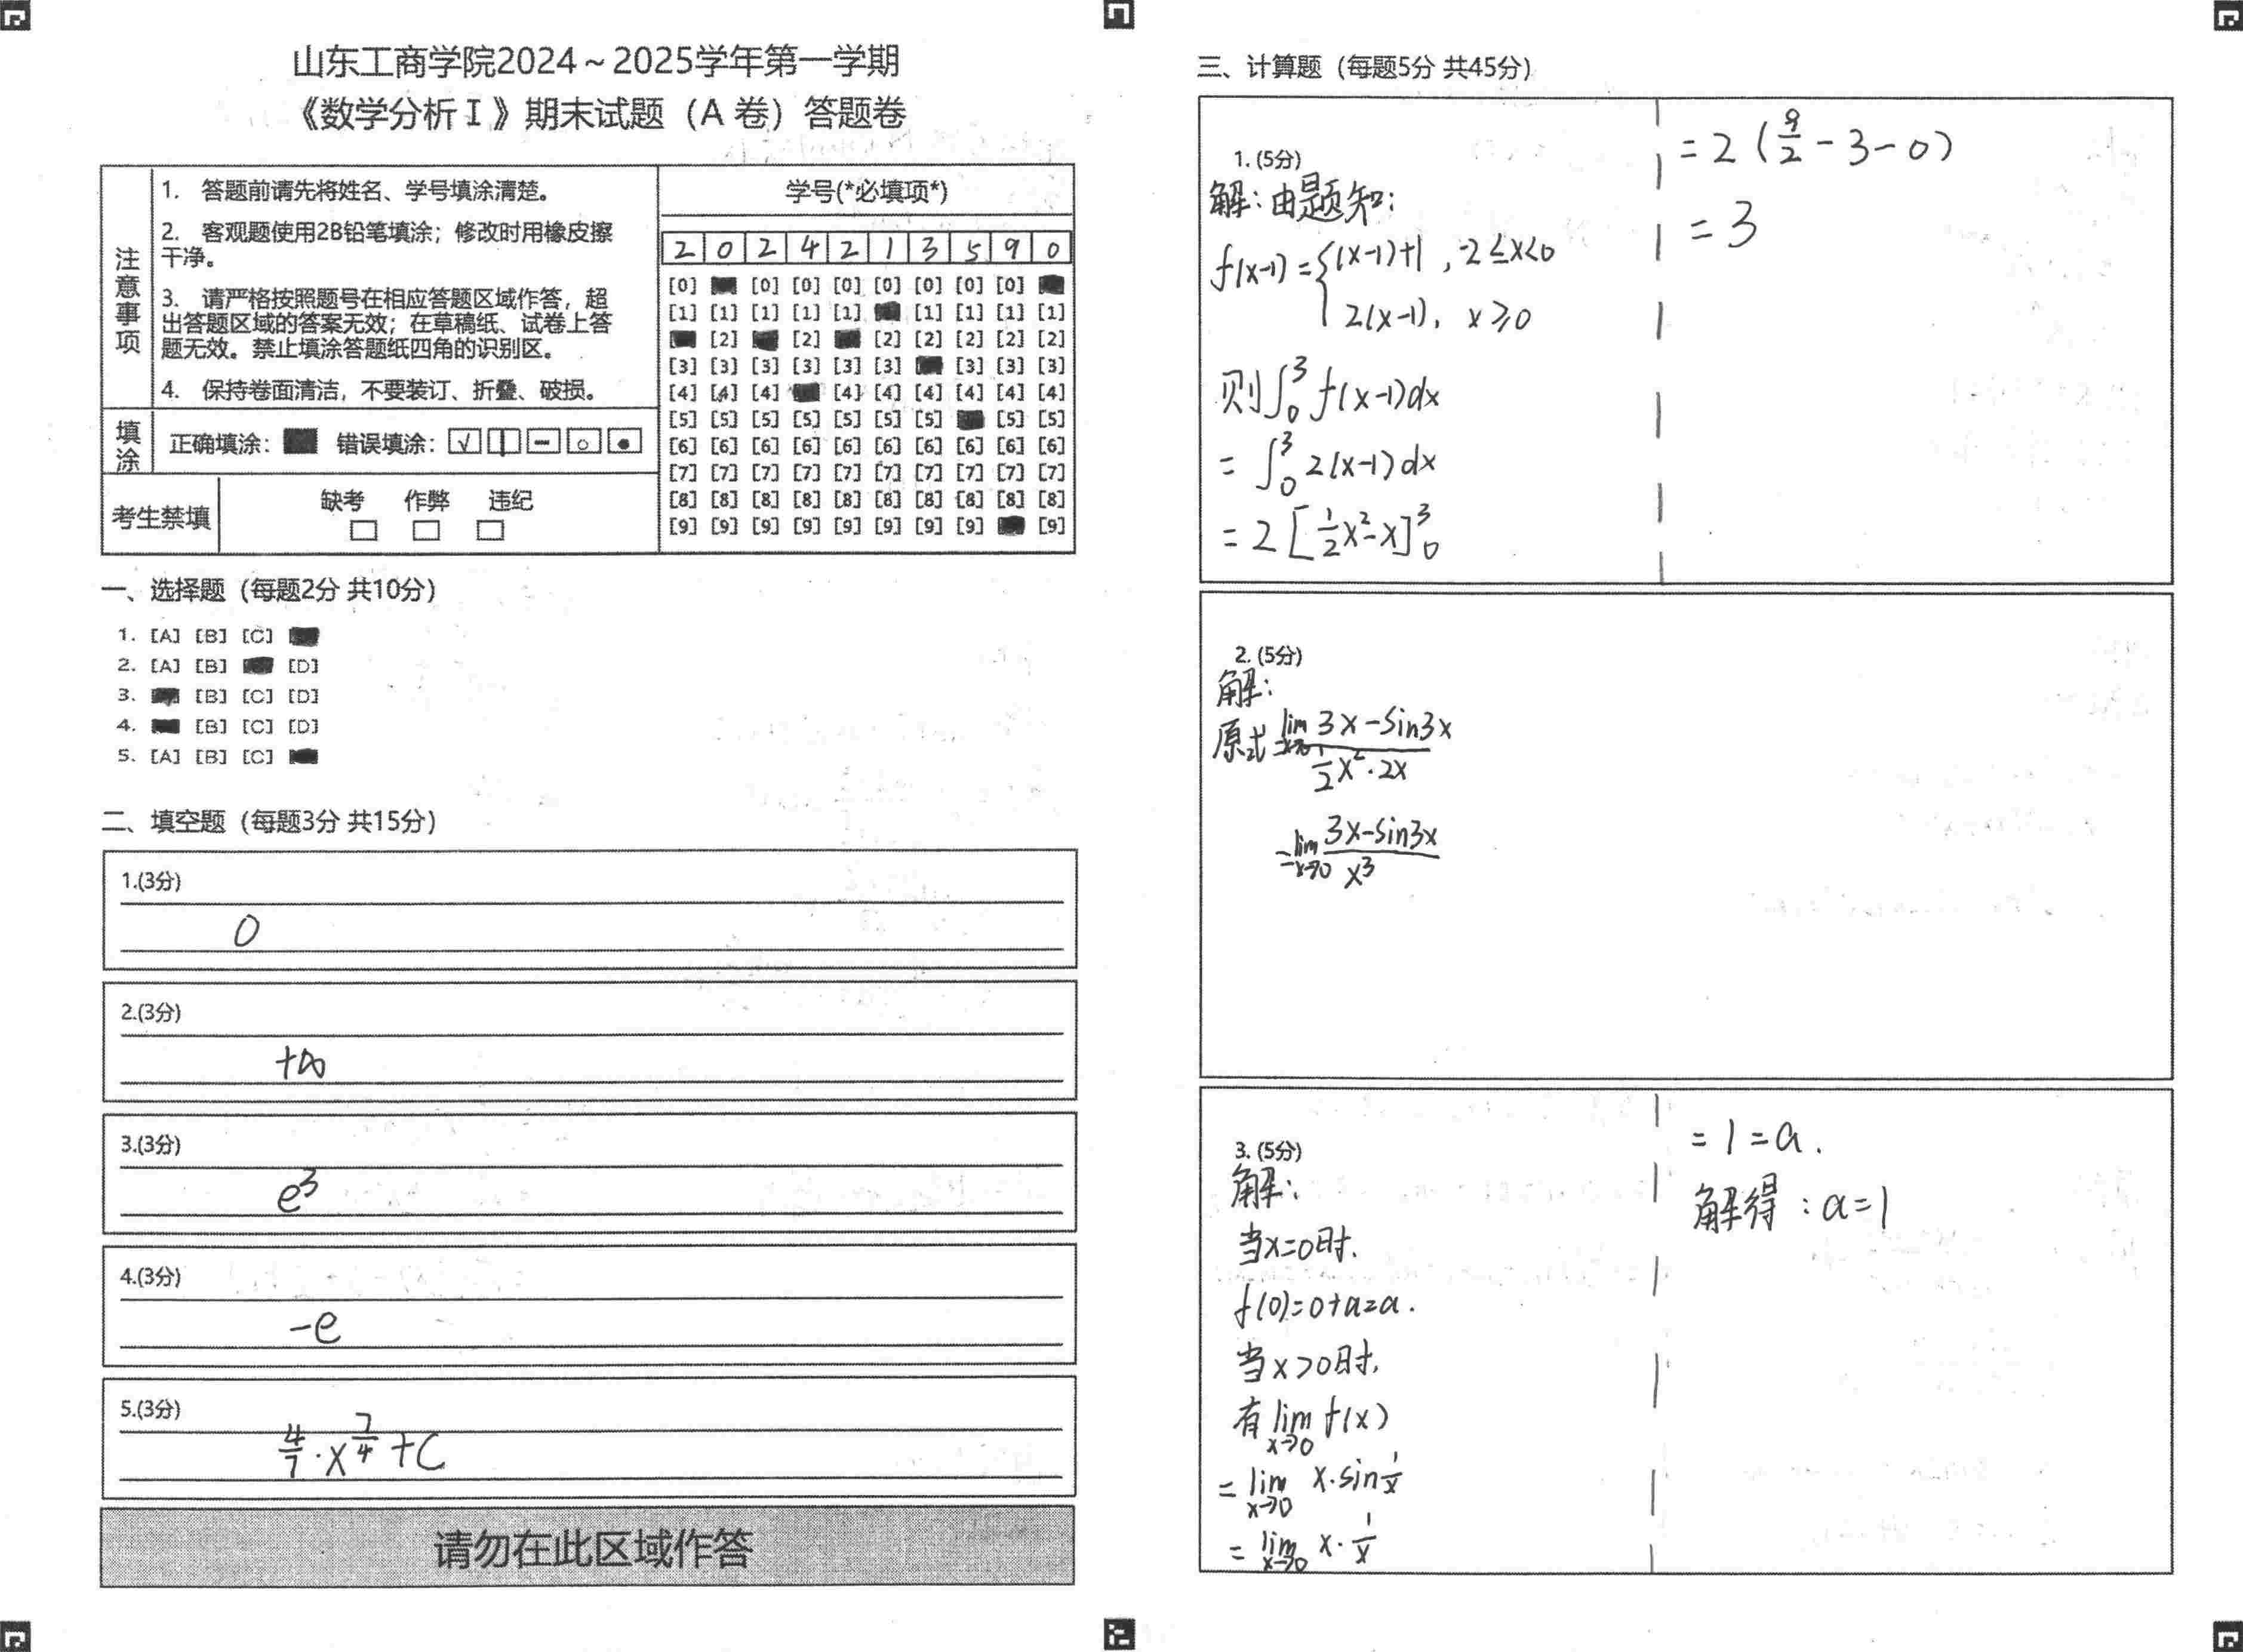 山东工商学院2024～2025学年第一学期
《数学分析Ⅰ》期末试题（A 卷）答题卷
注意事项
1. 答题前请先将姓名、学号填涂清楚。
2. 客观题使用2B铅笔填涂；修改时用橡皮擦
干净。
3. 请严格按照题号在相应答题区域作答，超
出答题区域的答案无效；在草稿纸、试卷上答
题无效。禁止填涂答题纸四角的识别区。
4. 保持卷面清洁，不要装订、折叠、破损。
填涂
正确填涂： 错误填涂： √
考生禁填
缺考 作弊 违纪
学号(*必填项*)
2 0 2 4 2 1 3 5 9 0
[0] [0] [0] [0] [0] [0] [0] [0]
[1] [1] [1] [1] [1] [1] [1] [1] [1]
[2] [2] [2] [2] [2] [2] [2]
[3] [3] [3] [3] [3] [3] [3] [3] [3]
[4] [4] [4] [4] [4] [4] [4] [4] [4]
[5] [5] [5] [5] [5] [5] [5] [5] [5]
[6] [6] [6] [6] [6] [6] [6] [6] [6] [6]
[7] [7] [7] [7] [7] [7] [7] [7] [7] [7]
[8] [8] [8] [8] [8] [8] [8] [8] [8] [8]
[9] [9] [9] [9] [9] [9] [9] [9] [9]
一、选择题（每题2分 共10分）
1. [A] [B] [C]
2. [A] [B] [D]
3. [B] [C] [D]
4. [B] [C] [D]
5. [A] [B] [C]
二、填空题（每题3分 共15分）
1.(3分)
0
2.(3分)
+∞
3.(3分)
e³
4.(3分)
-e
5.(3分)
4/7·x^(7/4)+C
请勿在此区域作答
三、计算题（每题5分 共45分）
1. (5分)
解：由题知：
f(x-1)={(x-1)+1，-2≤x<0
2(x-1)，x≥0
则∫₀³f(x-1)dx
=∫₀³2(x-1)dx
=2[1/2x²-x]₀³
=2(9/2-3-0)
=3
2. (5分)
解：
原式=lim x→0 (3x-sin3x)/(1/2x²·2x)
=lim x→0 (3x-sin3x)/x³
3. (5分)
解：
当x=0时.
f(0)=0+a=a.
当x>0时,
有lim x→0 f(x)
=lim x→0 x·sin1/x
=lim x→0 x·1/x
=1=a.
解得：a=1